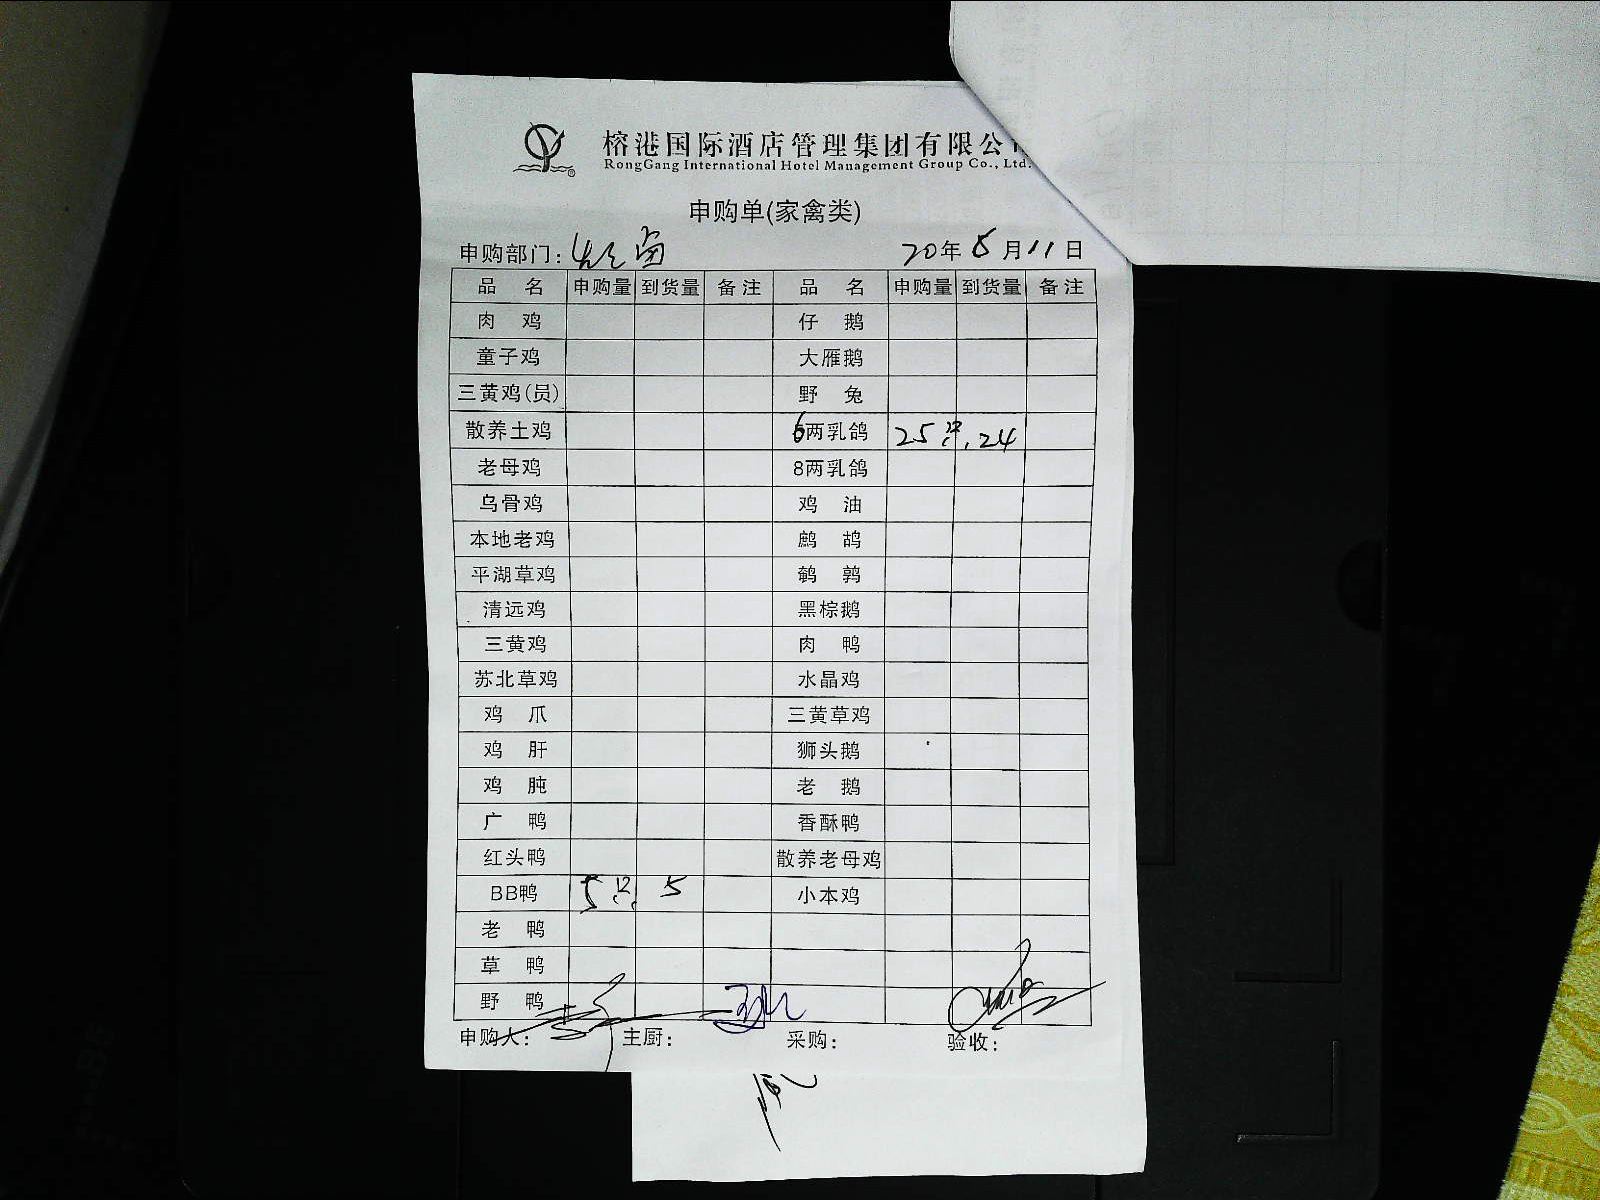 榕港国际酒店管理集团有限公
RongGang International Hotel Management Group Co., Ltd.
申购单(家禽类)
申购部门: 20年 月11日
品 名 申购量 到货量 备注 品 名 申购量 到货量 备注
肉 鸡 仔 鹅
童子鸡 大雁鹅
三黄鸡(员) 野 兔
散养土鸡 6两乳鸽 25只 24
老母鸡 8两乳鸽
乌骨鸡 鸡 油
本地老鸡 鹧 鸪
平湖草鸡 鹌 鹑
清远鸡 黑棕鹅
三黄鸡 肉 鸭
苏北草鸡 水晶鸡
鸡 爪 三黄草鸡
鸡 肝 狮头鹅
鸡 肫 老 鹅
广 鸭 香酥鸭
红头鸭 散养老母鸡
BB鸭 5只 5 小本鸡
老 鸭
草 鸭
野 鸭
申购人: 主厨: 采购: 验收: